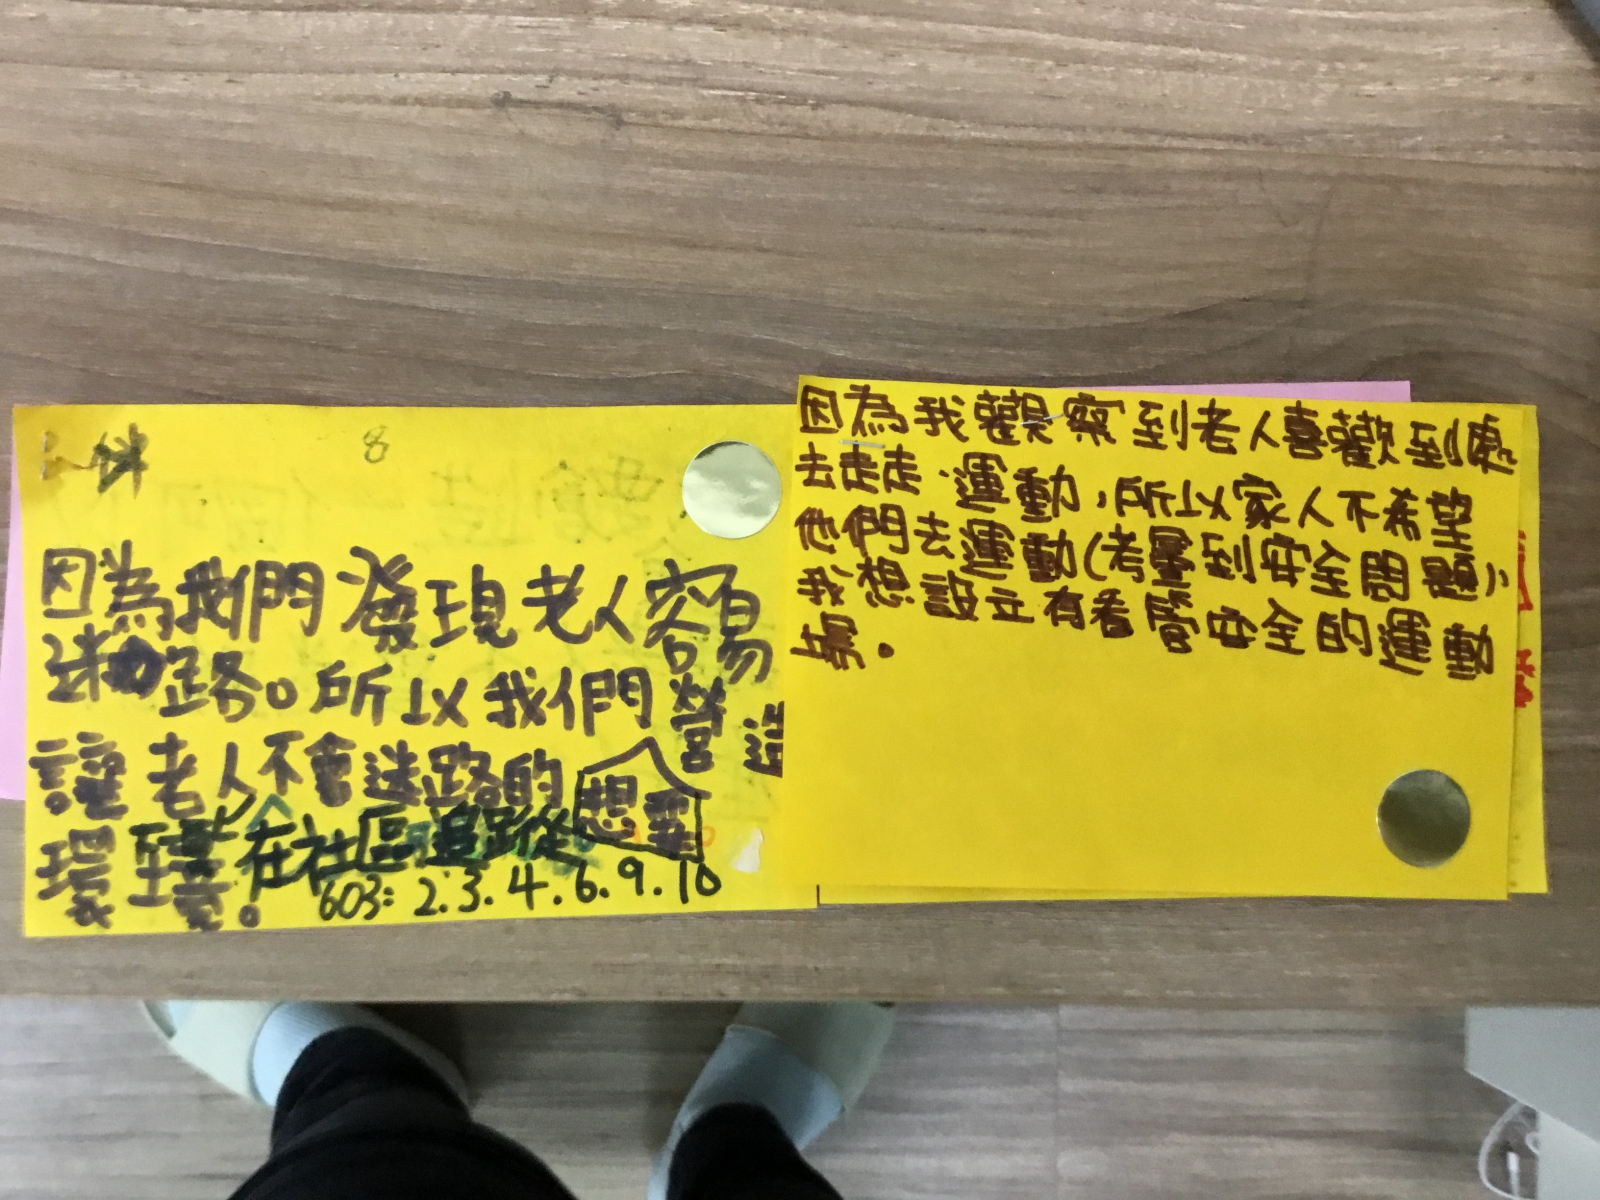 8
因為我們發現老人容易
迷路。所以我們營造
讓老人不會迷路的
想要
環境。在社區
603: 2.3.4.6.9.10
因為我觀察到老人喜歡到處
去走走、運動,所以家人不希望
他們去運動(考量到安全問題),
我想設立有看管安全的運動
場。